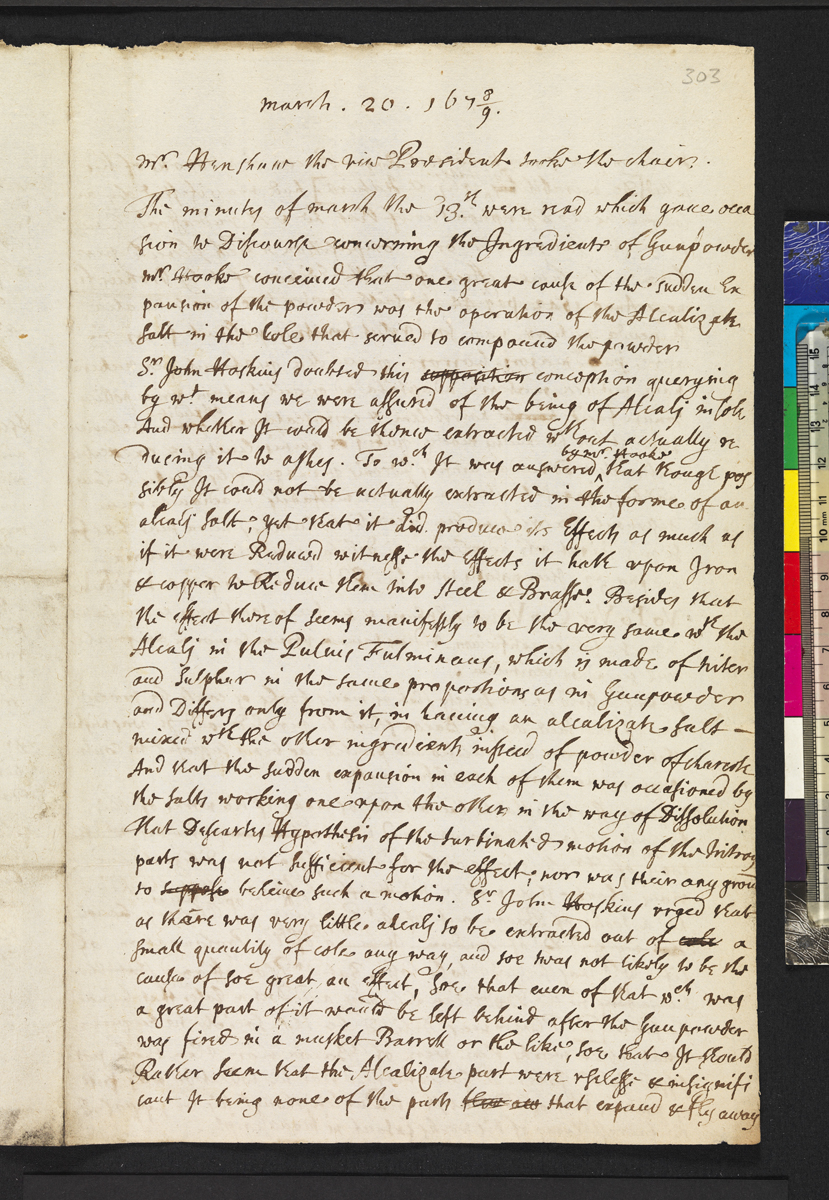 303
march . 20 . 167 8/9.
mr. Henshaw the vice President tooke the chair.
The minutes of march the 13.th were read which gave occa
sion to Discourse concerning the Ingredients of Gunpowder
mr. Hooke conceived that one great cause of the sudden Ex
pansion of the powder was the operation of the Alcalizate
salt in the Cole that served to compound the powder
Sr. John Hoskins doubted this supposition conception querying
by wt means we were assured of the being of Alcalj in Cole
And whether It could be thence extracted wthout actually re
ducing it to ashes. To wch It was answered by mr. Hooke that though pos
sibly It could not be actually extracted in the forme of an
alcalj salt, yet that it did produce its Effects as much as
if it were Reduced witnesse the Effects it hath upon Iron
& copper to Reduce them into Steel & Brasse. Besides that
the effect thereof seems manifestly to be the very same wth the
Alcalj in the Pulvis Fulminans, which is made of niter
and Sulphur in the same proportions as in Gunpowder
and Differs only from it, in having an alcalizate salt -
mixed wth the other ingredients insteed of powder of charcole
And that the sudden expansion in each of them was occasioned by
the salts working one upon the other in the way of Dissolution
that Descartes Hypothesis of the turbinated motion of the Nitrous
parts was not sufficient for the effect, nor was their any groun
to suppose beleive such a motion. Sr John Hoskins urged that
as there was very little alcalj to be extracted out of cole a
small quantity of cole any way, and soe was not likely to be the
cause of soe great an effect, Soe that even of that wch was
a great part of it would be left behind after the Gunpowder
was fired in a musket Barrell or the like, soe that It should
Rather seem that the Alcalizate part were uselesse & insignifi
cant It being none of the parts that expand & fly away